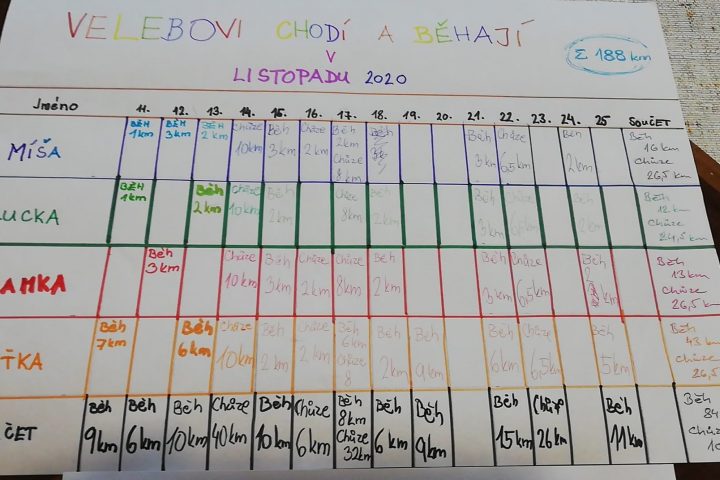 VELEBOVI CHODÍ A BĚHAJÍ
V
LISTOPADU 2020
Σ 188 km
Jméno 11. 12. 13. 14. 15. 16. 17. 18. 19. 20. 21. 22. 23. 24. 25 SOUČET
MÍŠA
BĚH 1km
BĚH 3km
BĚH 2km
Chůze 10km
Běh 3km
Chůze 2km
Běh 2km Chůze 8km
Běh
Běh 3km
Chůze 6,5km
Běh 2km
Běh 16km Chůze 26,5 km
UCKA
BĚH 1km
Běh 2km
Chůze 10km
Běh 2km
Chůze 8km
Běh 2km
Běh 3km
Chůze
Běh 12km Chůze 24,5 km
AMKA
Běh 3km
Chůze 10km
Běh 3km
Chůze 2km
Chůze 8km
Běh 2km
Běh 3km
Chůze 6,5km
Běh km
Běh 13km Chůze 26,5 km
ŤKA
Běh 7km
Běh 6km
Chůze 10km
Běh 2km
Chůze 2km
Běh 6km Chůze 8
Běh 2km
Běh 9km
Běh 6km
Chůze 6,5km
Běh 5km
Běh 43 km Chůze 26,5
ČET
Běh 9km
Běh 6km
Běh 10km
Chůze 40km
Běh 10km
Chůze 6km
Běh 8km Chůze 32km
Běh 6km
Běh 9km
Běh 15km
Chůze 26km
Běh 11km
Běh 84 Chůze 10